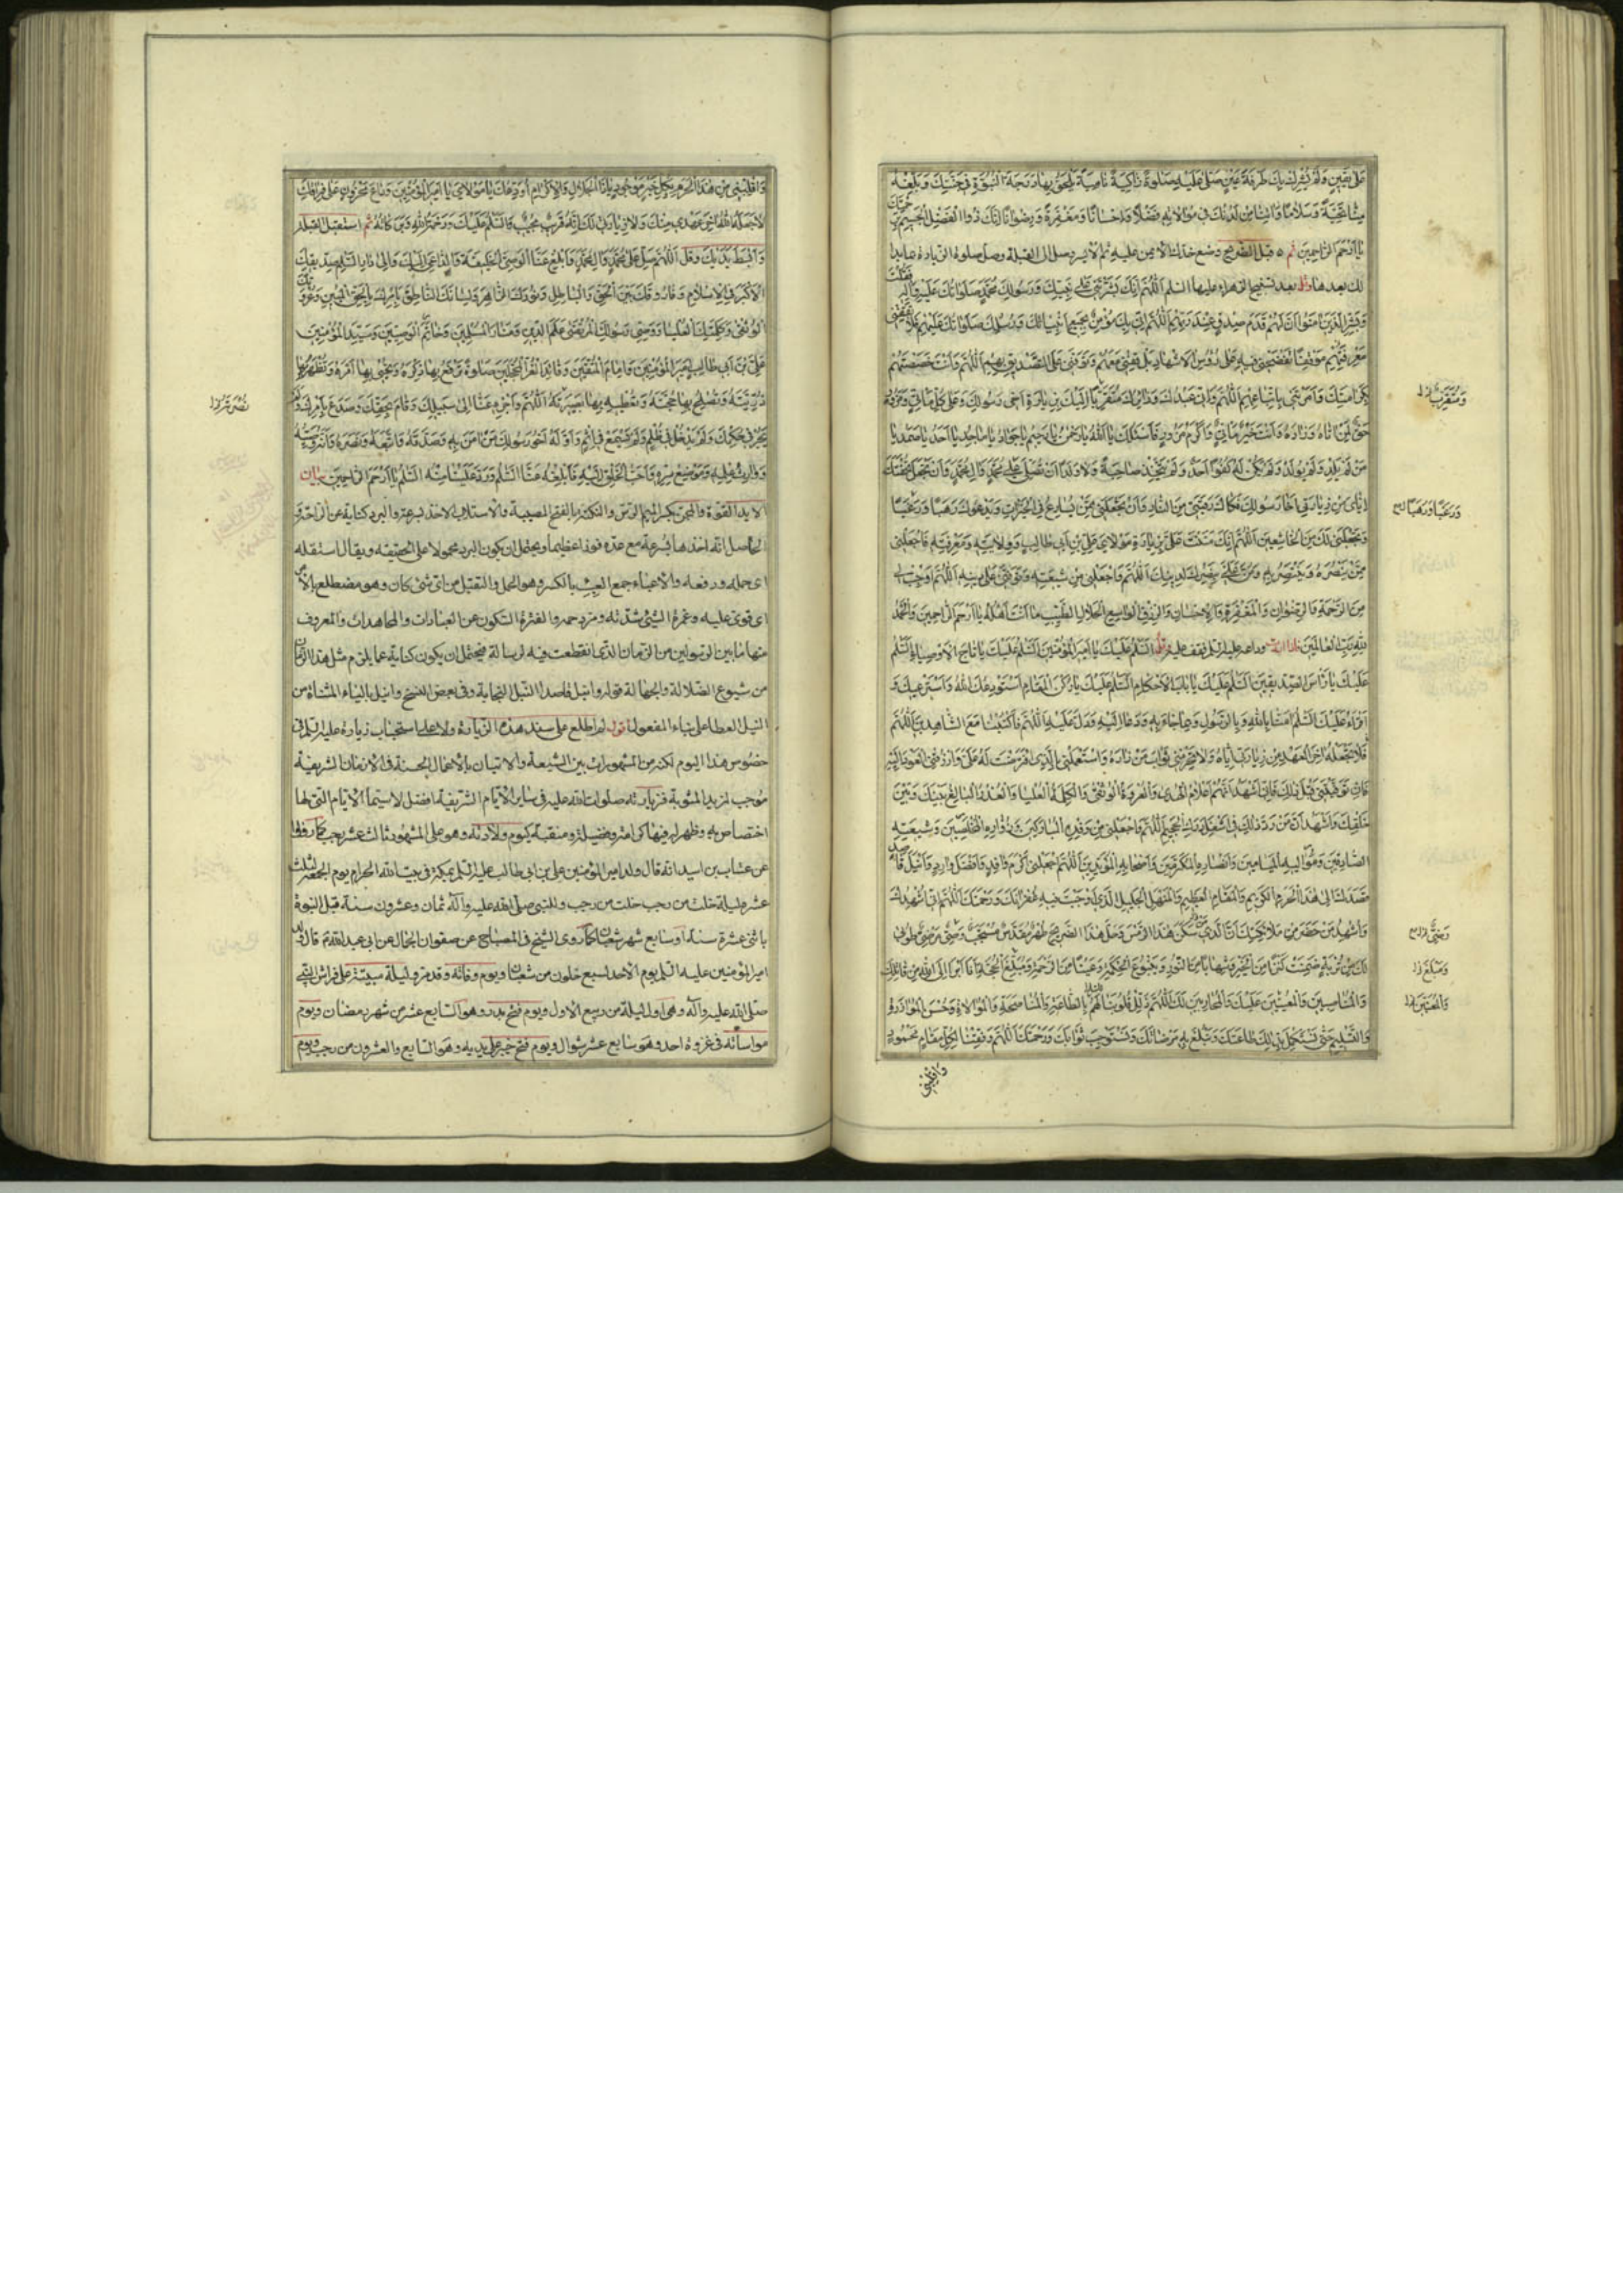 على يقين ولم يشرك بك طرفة عين صل عليه صلوة زاكية نامية يلحق بها درجة النبوة في جنتك وبلغه
منا تحية وسلاما واتنا من لدنك في موالاته فضلا واحسانا ومغفرة ورضوانا انك ذو الفضل الجسيم برحمتك
يا ارحم الراحمين ثم قبل الضريح وضع خدك الايمن عليه ثم الايسر ومل الى القبلة وصل صلوة الزيارة وما بدا
لك بعدها وقل بعد تسبيح الزهراء عليها السلم اللهم انك بشرتني على نبيك ورسولك محمد صلواتك عليه واله فقلت
وبشر الذين امنوا ان لهم قدم صدق عند ربهم اللهم اني بك مؤمن بجميع انبيائك ورسلك صلواتك عليهم فلا تقفني بعد
معرفتهم موقفا تفضحني فيه على رؤس الاشهاد بل قفني معهم وتوفني على التصديق بهم اللهم وانت خصصتهم
بكرامتك وامرتني باتباعهم اللهم واني عبدك وزائرك متقربا اليك بزيارة اخي رسولك وعلى كل ماتي ومزور
حق لمن اتاه وزاره وانت خير ماتي واكرم مزور فاسئلك يا الله يا رحمن يا رحيم يا جواد يا ماجد يا احد يا صمد يا
من لم يلد ولم يولد ولم يكن له كفوا احد ولم يتخذ صاحبة ولا ولدا ان تصلي على محمد وال محمد وان تجعل تحفتك
اياي من زيارتي اخا رسولك فكاك رقبتي من النار وان تجعلني ممن يسارع في الخيرات ويدعوك رهبا ورغبا
وتجعلني لك من الخاشعين اللهم انك مننت علي بزيارة مولاي علي بن ابي طالب وولايته ومعرفته فاجعلني
ممن ينصره وينتصر به ومن علي بنصرك لدينك اللهم واجعلني من شيعته وتوفني على دينه اللهم اوجب لي
من الرحمة والرضوان والمغفرة والاحسان والرزق الواسع الحلال الطيب ما انت اهله يا ارحم الراحمين والحمد
لله رب العالمين فاذا اردت وداعه عليه السلم فقف عليه وقل السلم عليك يا امير المؤمنين السلم عليك يا تاج الاوصياء السلم
عليك يا راس الصديقين السلم عليك يا باب الاحكام السلم عليك يا ركن المقام استودعك الله واسترعيك و
اقرء عليك السلم امنا بالله وبالرسول وبما جاء به ودعا اليه ودل عليه اللهم فاكتبنا مع الشاهدين اللهم
فلا تجعله اخر العهد من زيارتي اياه ولا تحرمني ثواب من زاره واستعملني بالذي افترضت له علي وارزقني العود اليه
فان توفيتني قبل ذلك فاني اشهد انهم اعلام الهدى والعروة الوثقى والكلمة العليا والحجة البالغة بينك وبين
خلقك واشهد ان من رد ذلك في اسفل درك الجحيم اللهم واجعلني من وفده المباركين وزواره المخلصين وشيعته
الصادقين ومواليه الميامين وانصاره المكرمين واصحابه المؤيدين اللهم اجعلني اكرم وافد وافضل وارد وانبل قاصد
قصدك الى هذا الحرم الكريم والمقام العظيم والمنهل الجليل الذي اوجبت فيه غفرانك ورحمتك اللهم اني اشهدك
واشهد من حضر من ملائكتك ان الذي سكن هذا الرمس وحل هذا الضريح طهر مقدس منتجب وصي مرضي طوبى
لك من تربة ضمنت كنزا من الخير وشهابا من النور وينبوع الحكمة وعينا من الرحمة ومبلغ الحجة انا ابرا الى الله من قاتلك
والناصبين والمعينين عليك والمحاربين لك اللهم ذلل قلوبنا لهم بالطاعة والمناصحة والموالاة وحسن الموازرة
والتسليم حتى نستكمل بذلك طاعتك ونبلغ به مرضاتك ونستوجب ثوابك ورحمتك اللهم وفقنا لكل مقام محمود
واقلبني
واقلبني من هذا الحرم بكل خير موجود يا ذا الجلال والاكرام اودعك يا مولاي يا امير المؤمنين وداع محزون على فراقك
لا جعله الله اخر عهدي منك ولا زيارتي لك انه قريب مجيب والسلم عليك ورحمة الله وبركاته ثم استقبل القبلة
وابسط يديك وقل اللهم صل على محمد وال محمد وابلغ عنا الوصي الخليفة والداعي اليك والى دار السلم صديقك
الاكبر في الاسلام وفاروقك بين الحق والباطل ونورك الظاهر ولسانك الناطق بامرك بالحق المبين وعروتك
الوثقى وكلمتك العليا ووصي رسولك المرتضى علم الدين ومنار المسلمين وخاتم الوصيين وسيد المؤمنين
علي بن ابي طالب امير المؤمنين وامام المتقين وقائد الغر المحجلين صلوة ترفع بها ذكره وتحيي بها امره وتظهر بها
ذريته وتفلج بها حجته وتعطيه بها بصيرته اللهم واجزه عنا
الى سبيلك وقام بحقك وصدع بامرك ولم
يجر في حكمك ولم يدخل في ظلم ولم يسع في اثم واوله اخو رسولك من امن به وصدقه واتبعه ونصره وانه وصيه
ووارث علمه وموضع سره واحب الخلق اليه فابلغه عنا السلم ورد علينا منه السلم يا ارحم الراحمين بيان
الايد القوة والمجن بكسر الميم الترس والنكبة بالفتح المصيبة والاستلاب الاخذ بسرعة والبرد كناية عن الراحة و
الحاصل انه اخذها بسرعة مع عده فوزا عظيما ويحتمل ان يكون البرد محمولا على الحقيقة ويقال استقله
اي حمله ورفعه والاعباء جمع العبئ بالكسر وهو الحمل والثقيل من اي شئ كان وهو مضطلع بالامر
اي قوي عليه وغمرة الشئ شدته ومزدحمه والفترة السكون عن العبادات والمجاهدات والمعروف
منها ما بين الرسولين من الزمان الذي انقطعت فيه الرسالة فيحتمل ان يكون كناية عما يلزم مثل هذا الزمان
من شيوع الضلالة والجهالة قوله وانبل قاصد النبل النجابة وفي بعض النسخ وانيل بالياء المثناة من
النيل العطا على بناء المفعول اقول لم اطلع على سند هذه الزيارة ولا على استحباب زيارة عليه السلم في
خصوص هذا اليوم لكنه من المشهورات بين الشيعة والاتيان بالاعمال الحسنة في الازمان الشريفة
موجب لمزيد المثوبة فزيارته صلوات الله عليه في سائر الايام الشريفة افضل لاسيما الايام التي لها
اختصاص به وظهر له فيها كرامة وفضيلة ومنقبة كيوم ولادته وهو على المشهور ثالث عشر رجب كما روي
عن عتاب بن اسيد انه قال ولد امير المؤمنين علي بن ابي طالب عليه السلم بمكة في بيت الله الحرام يوم الجمعة لثلث
عشر ليلة خلت من رجب خلت من رجب وللنبي صلى الله عليه وآله ثمان وعشرون سنة قبل النبوة
باثني عشرة سنة او سابع شهر شعبان كما روى الشيخ في المصباح عن صفوان الجمال عن ابي عبد الله ع قال ولد
امير المؤمنين عليه السلم يوم الاحد لسبع خلون من شعبان ويوم وفاته وقد مر وليلة مبيته على فراش النبي
صلى الله عليه وآله وهي اول ليلة من ربيع الاول ويوم فتح بدر وهو السابع عشر من شهر رمضان ويوم
مواساته في غزوة احد وهو سابع عشر شوال ويوم فتح خيبر على يديه وهو السابع والعشرون من رجب ويوم